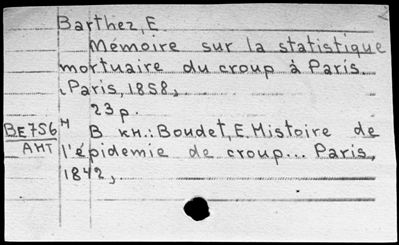 Barthez, E.
Mémoire sur la statistique
mortuaire du croup à Paris.
Paris, 1858,
23 p.
BE756 м
АМТ
В кн.: Boudet, E. Histoire de
l'épidemie de croup... Paris,
1842,